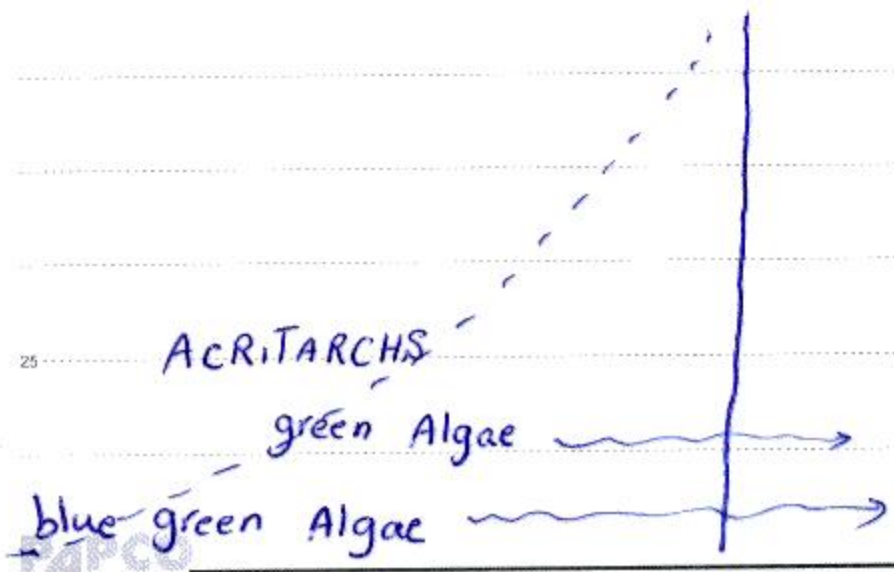 25 ACRITARCHS
green Algae
blue green Algae
PAPCO